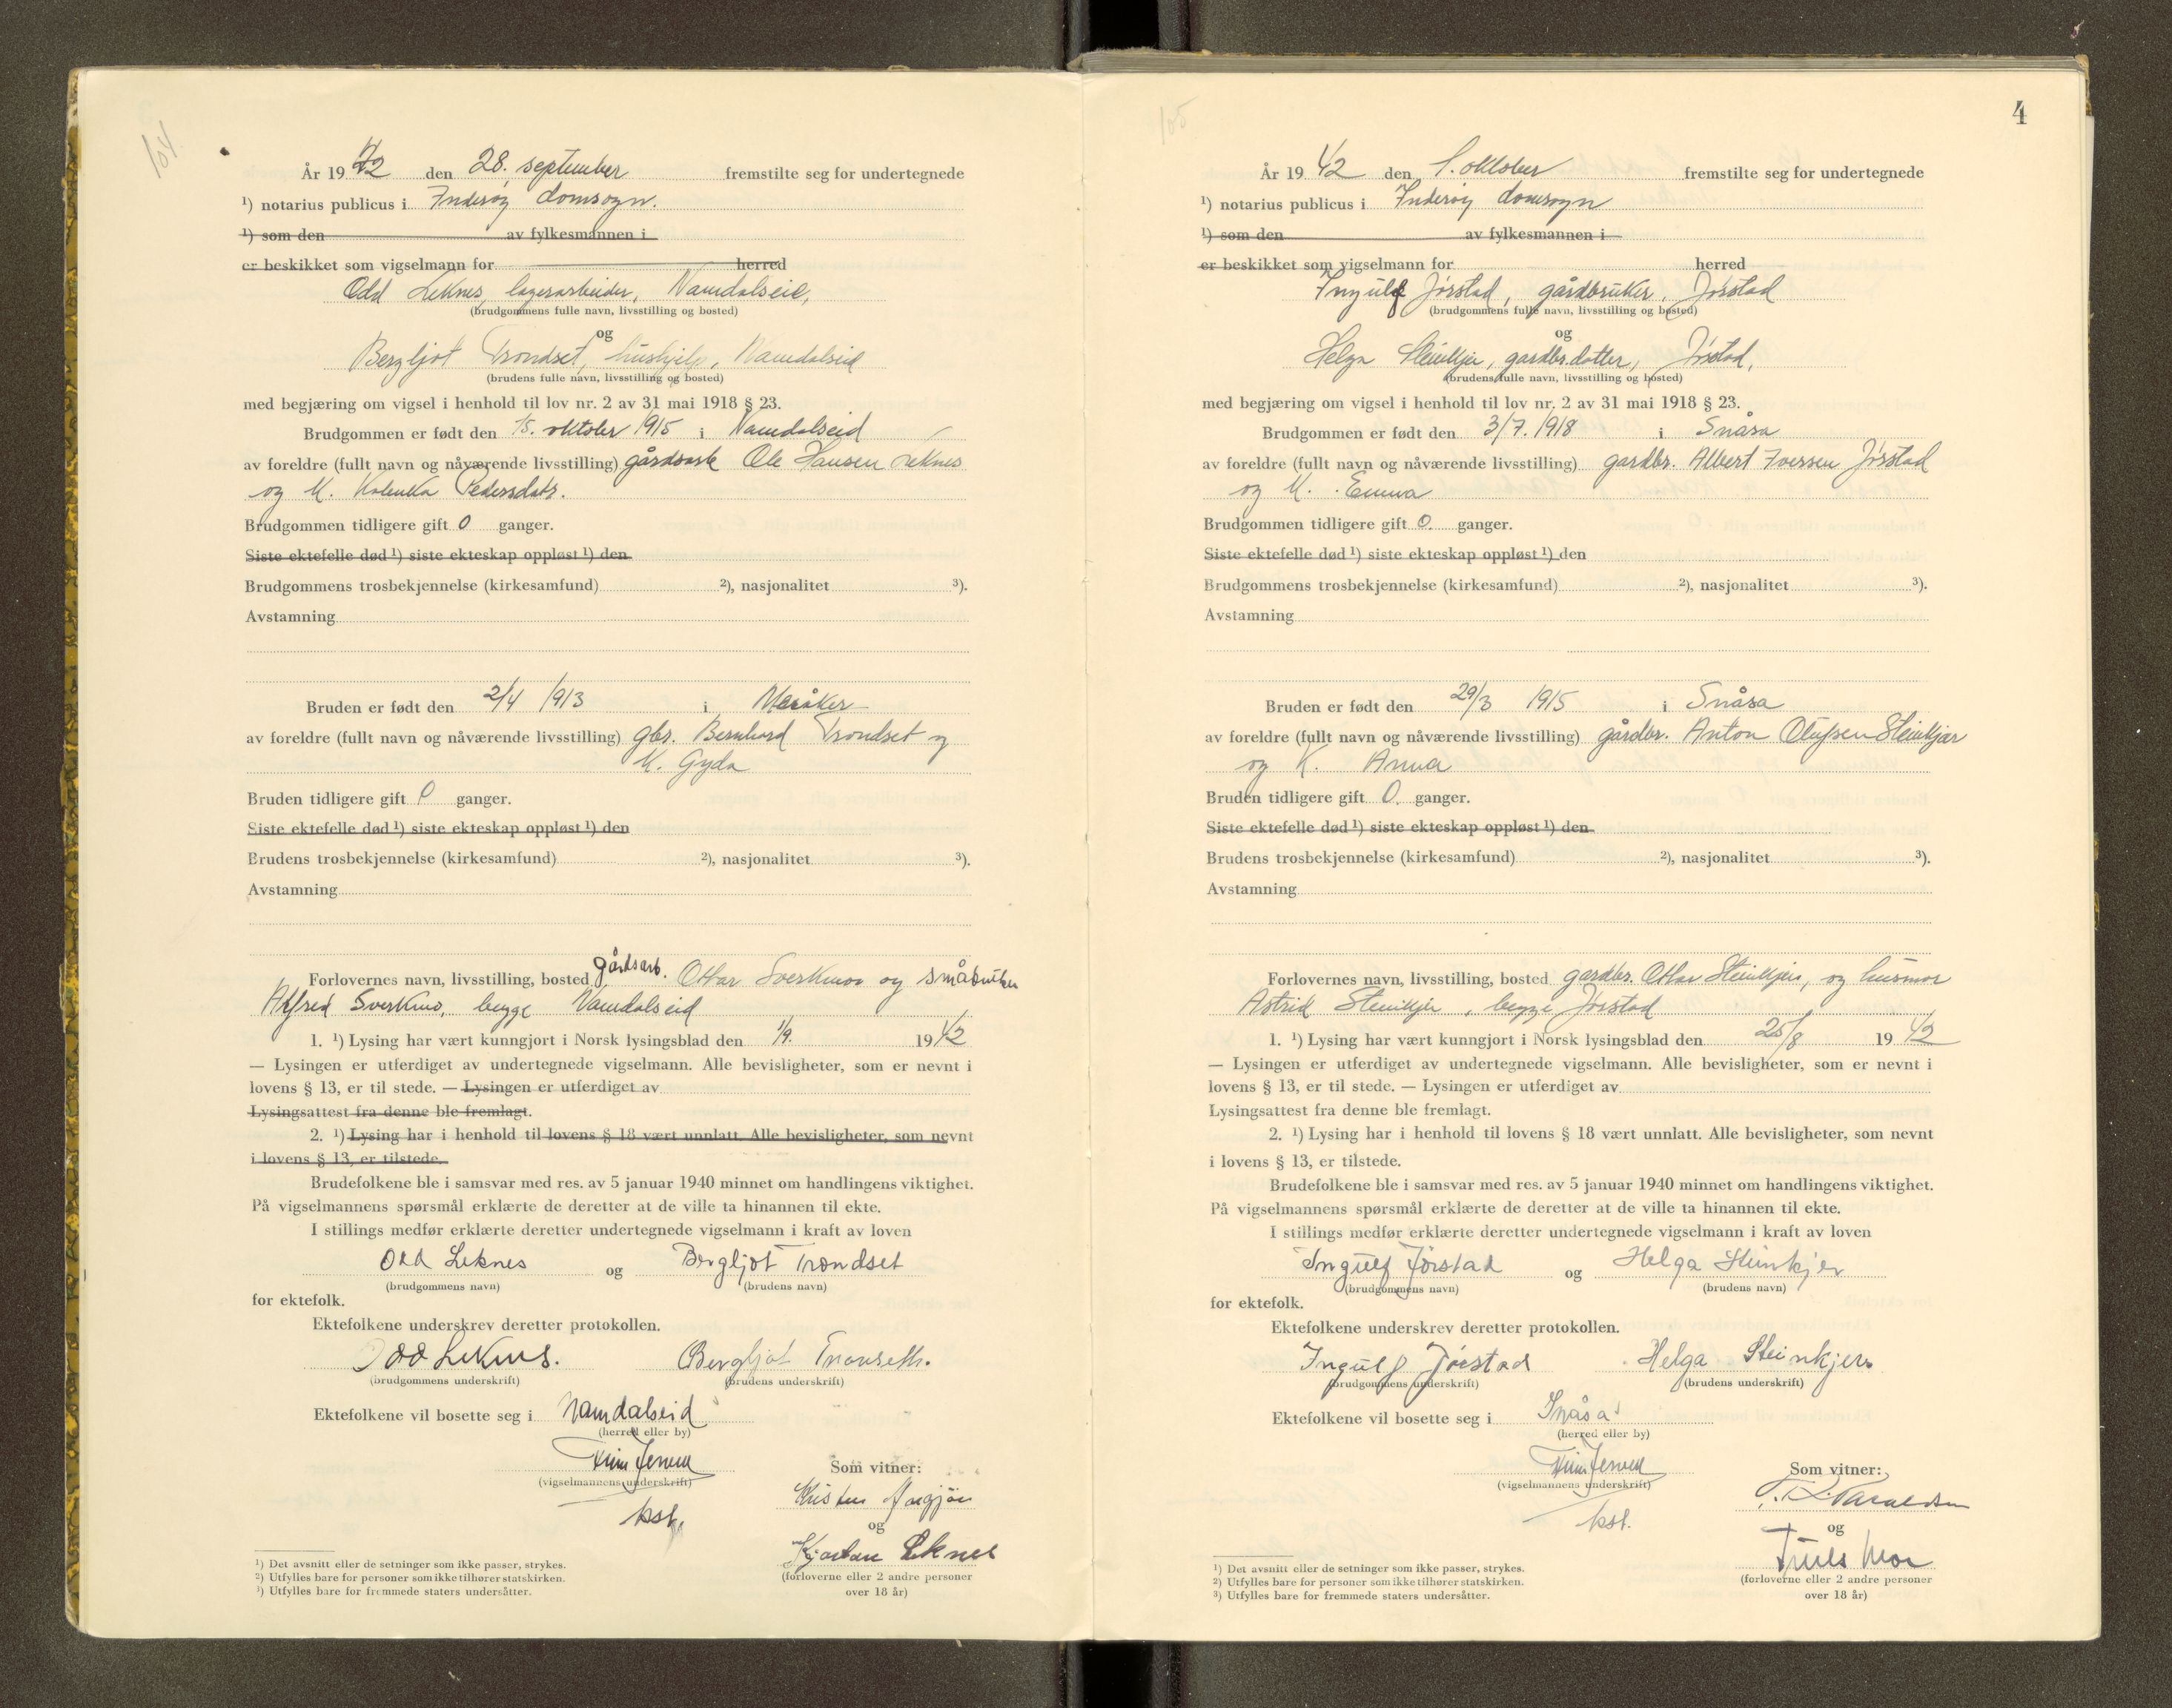 104
År 19 42 den 28. september fremstilte seg for undertegnede
¹) notarius publicus i Inderøy domsogn.
¹) som den av fylkesmannen i
er beskikket som vigselmann for herred
Odd Leknes, lagerarbeider, Namdalseid,
(brudgommens fulle navn, livsstilling og bosted)
og
Bergljot Trondset, hushjelp, Namdalseid
(brudens fulle navn, livsstilling og bosted)
med begjæring om vigsel i henhold til lov nr. 2 av 31 mai 1918 § 23.
Brudgommen er født den 15. oktober 1915 i Namdalseid
av foreldre (fullt navn og nåværende livsstilling) gårdsarb Ole Hansen Leknes
og K. Pedersdatr.
Brudgommen tidligere gift 0 ganger.
Siste ektefelle død ¹) siste ekteskap oppløst ¹) den
Brudgommens trosbekjennelse (kirkesamfund) ²), nasjonalitet ³).
Avstamning
Bruden er født den 2/4 1913 i Meråker
av foreldre (fullt navn og nåværende livsstilling) gbr. Bernhard Trondset og
K. Gyda
Bruden tidligere gift 0 ganger.
Siste ektefelle død ¹) siste ekteskap oppløst ¹) den
Brudens trosbekjennelse (kirkesamfund) ²), nasjonalitet ³).
Avstamning
Forlovernes navn, livsstilling, bosted gårdsarb. Ottar Sverkmo og småbruker
Alfred Sverkmo, begge Namdalseid
1. ¹) Lysing har vært kunngjort i Norsk lysingsblad den 1/9. 19 42
— Lysingen er utferdiget av undertegnede vigselmann. Alle bevisligheter, som er nevnt i
lovens § 13, er til stede. — Lysingen er utferdiget av
Lysingsattest fra denne ble fremlagt.
2. ¹) Lysing har i henhold til lovens § 18 vært unnlatt. Alle bevisligheter, som nevnt
i lovens § 13, er tilstede.
Brudefolkene ble i samsvar med res. av 5 januar 1940 minnet om handlingens viktighet.
På vigselmannens spørsmål erklærte de deretter at de ville ta hinannen til ekte.
I stillings medfør erklærte deretter undertegnede vigselmann i kraft av loven
Odd Leknes og Bergljot Trondset
(brudgommens navn) (brudens navn)
for ektefolk.
Ektefolkene underskrev deretter protokollen.
Odd Leknes. Bergljot Tronseth.
(brudgommens underskrift) (brudens underskrift)
Ektefolkene vil bosette seg i Namdalseid
(herred eller by)
(vigselmannens underskrift)
kst.
Som vitner:
og
Kjartan Leknes
(forloverne eller 2 andre personer
over 18 år)
¹) Det avsnitt eller de setninger som ikke passer, strykes.
²) Utfylles bare for personer som ikke tilhører statskirken.
³) Utfylles bare for fremmede staters undersåtter.
105
4
År 19 42 den 1. oktober fremstilte seg for undertegnede
¹) notarius publicus i Inderøy domsogn
¹) som den av fylkesmannen i
er beskikket som vigselmann for herred
Ingulf Jørstad, gårdbruker, Jørstad
(brudgommens fulle navn, livsstilling og bosted)
og
Helga Steinkjer, gardbr.datter, Jørstad,
(brudens fulle navn, livsstilling og bosted)
med begjæring om vigsel i henhold til lov nr. 2 av 31 mai 1918 § 23.
Brudgommen er født den 3/7. 1918 i Snåsa
av foreldre (fullt navn og nåværende livsstilling) gardbr. Albert Iversen Jørstad
og K. Emma
Brudgommen tidligere gift 0. ganger.
Siste ektefelle død ¹) siste ekteskap oppløst ¹) den
Brudgommens trosbekjennelse (kirkesamfund) ²), nasjonalitet ³).
Avstamning
Bruden er født den 29/3 1915 i Snåsa
av foreldre (fullt navn og nåværende livsstilling) gårdbr. Anton Olufsen Steinkjær
og K. Anna
Bruden tidligere gift 0. ganger.
Siste ektefelle død ¹) siste ekteskap oppløst ¹) den
Brudens trosbekjennelse (kirkesamfund) ²), nasjonalitet ³).
Avstamning
Forlovernes navn, livsstilling, bosted gardbr. Ottar Steinkjer, og husmor
Astrid Steinkjer, begge Jørstad
1. ¹) Lysing har vært kunngjort i Norsk lysingsblad den 25/8 19 42
— Lysingen er utferdiget av undertegnede vigselmann. Alle bevisligheter, som er nevnt i
lovens § 13, er til stede. — Lysingen er utferdiget av
Lysingsattest fra denne ble fremlagt.
2. ¹) Lysing har i henhold til lovens § 18 vært unnlatt. Alle bevisligheter, som nevnt
i lovens § 13, er tilstede.
Brudefolkene ble i samsvar med res. av 5 januar 1940 minnet om handlingens viktighet.
På vigselmannens spørsmål erklærte de deretter at de ville ta hinannen til ekte.
I stillings medfør erklærte deretter undertegnede vigselmann i kraft av loven
Ingulf Jørstad og Helga Steinkjer
(brudgommens navn) (brudens navn)
for ektefolk.
Ektefolkene underskrev deretter protokollen.
Ingulf Jørstad Helga Steinkjer
(brudgommens underskrift) (brudens underskrift)
Ektefolkene vil bosette seg i Snåsa
(herred eller by)
(vigselmannens underskrift)
kst.
Som vitner:
og
(forloverne eller 2 andre personer
over 18 år)
¹) Det avsnitt eller de setninger som ikke passer, strykes.
²) Utfylles bare for personer som ikke tilhører statskirken.
³) Utfylles bare for fremmede staters undersåtter.